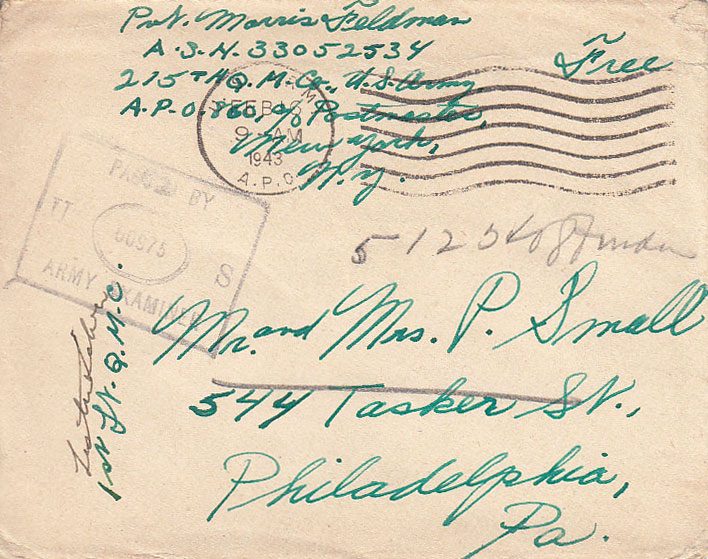 Pvt. Morris Feldman
A.S.N. 33052534
215TH Q.M. Co., U.S. Army,
A.P.O. 860, c/o Postmaster,
New York,
N.Y.
Free
FEB
9 AM
1943
A.P.O.
PASSED BY
ARMY EXAMINER
S
512
Mr. and Mrs. P. Small
544 Tasker St.,
Philadelphia,
Pa.
1st Lt. Q.M.C.